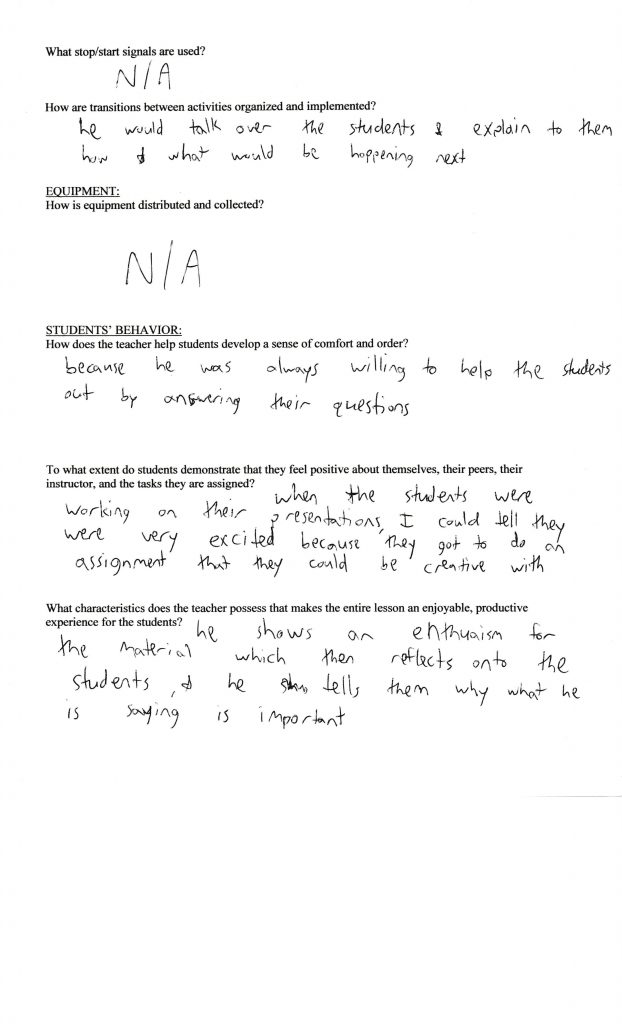 What stop/start signals are used?
N/A
How are transitions between activities organized and implemented?
he would talk over the students & explain to them
how & what would be happening next
EQUIPMENT:
How is equipment distributed and collected?
N/A
STUDENTS' BEHAVIOR:
How does the teacher help students develop a sense of comfort and order?
because he was always willing to help the students
out by answering their questions
To what extent do students demonstrate that they feel positive about themselves, their peers, their
instructor, and the tasks they are assigned?
when the students were
working on their presentations, I could tell they
were very excited because they got to do an
assignment that they could be creative with
What characteristics does the teacher possess that makes the entire lesson an enjoyable, productive
experience for the students?
he shows an enthuaism for
the material which then reflects onto the
students, & he tells them why what he
is saying is important